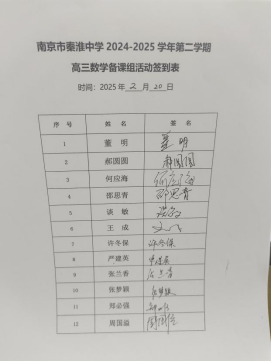 南京市秦淮中学 2024-2025 学年第二学期
高三数学备课组活动签到表
时间：2025 年 2 月 20 日
1 董 明 董 明
2 郝圆圆 郝圆圆
3 何应海 何应海
4 邵思青 邵思青
5 谈 敏 谈敏
6 王 成
7 许冬保 许冬保
8 严建英 严建英
9 张兰香 张兰香
10 张梦颖 张梦颖
11 郑必强
12 周国溢 周国溢